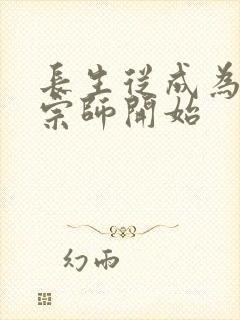 長生從成為
宗師開始
幻雨